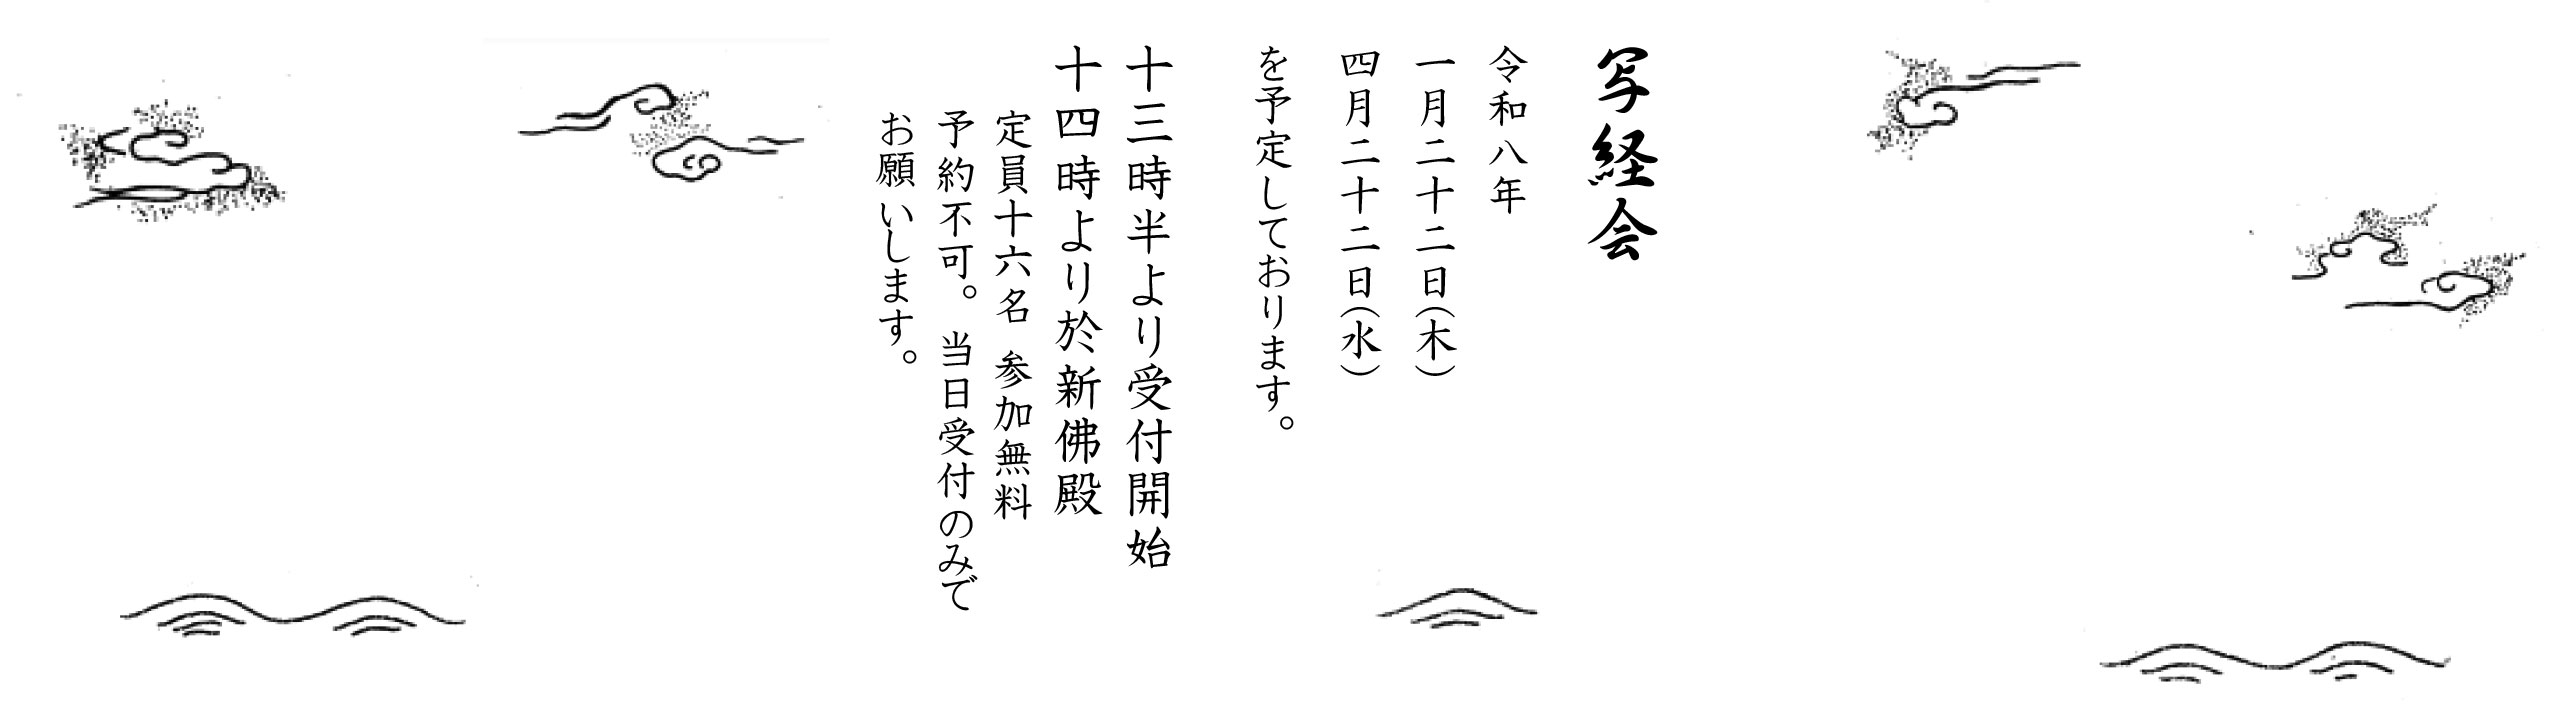 写経会
令和八年
一月二十二日（木）
四月二十二日（水）
を予定しております。
十三時半より受付開始
十四時より於新佛殿
定員十六名 参加無料
予約不可。当日受付のみで
お願いします。